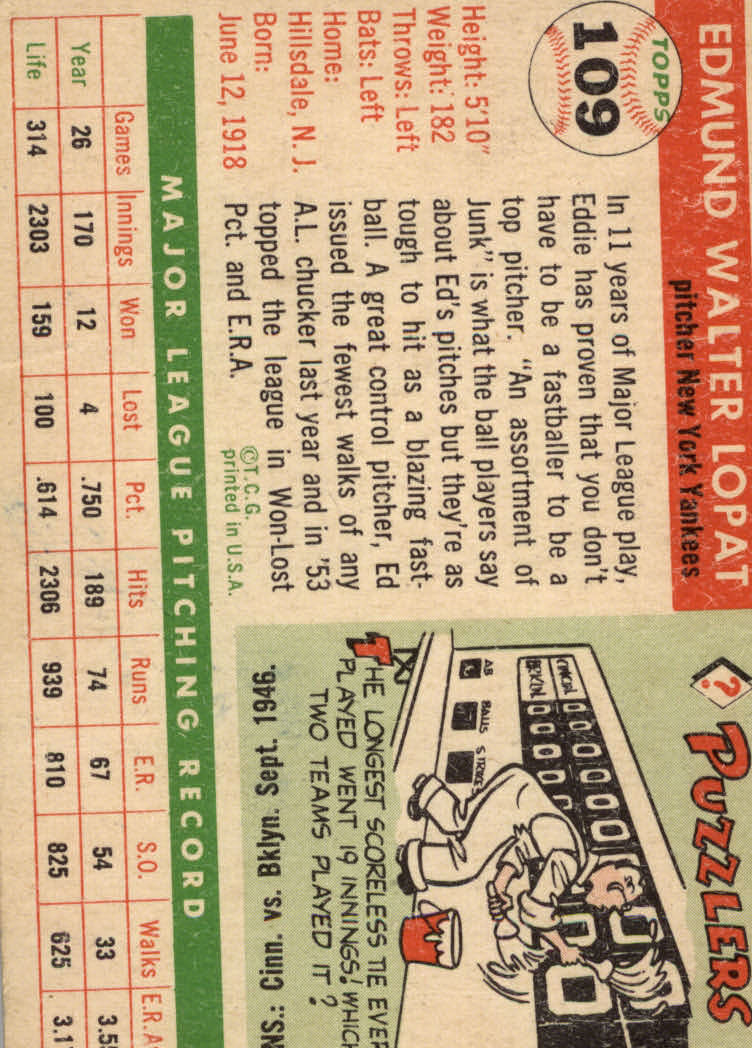 EDMUND WALTER LOPAT
pitcher New York Yankees
TOPPS
109
Height: 5'10"
Weight: 182
Throws: Left
Bats: Left
Home:
Hillsdale, N. J.
Born:
June 12, 1918
In 11 years of Major League play,
Eddie has proven that you don't
have to be a fastballer to be a
top pitcher. "An assortment of
Junk" is what the ball players say
about Ed's pitches but they're as
tough to hit as a blazing fast-
ball. A great control pitcher, Ed
issued the fewest walks of any
A.L. chucker last year and in '53
topped the league in Won-Lost
Pct. and E.R.A.
©T.C.G.
printed in U.S.A.
? PUZZLERS
AB BALLS STRIKES
THE LONGEST SCORELESS TIE EVER
PLAYED WENT 19 INNINGS! WHICH
TWO TEAMS PLAYED IT?
NS.: Cinn. vs. Bklyn. Sept. 1946.
MAJOR LEAGUE PITCHING RECORD
Games Innings Won Lost Pct. Hits Runs E.R. S.O. Walks E.R.A.
Year 26 170 12 4 .750 189 74 67 54 33 3.5
Life 314 2303 159 100 .614 2306 939 810 825 625 3.1